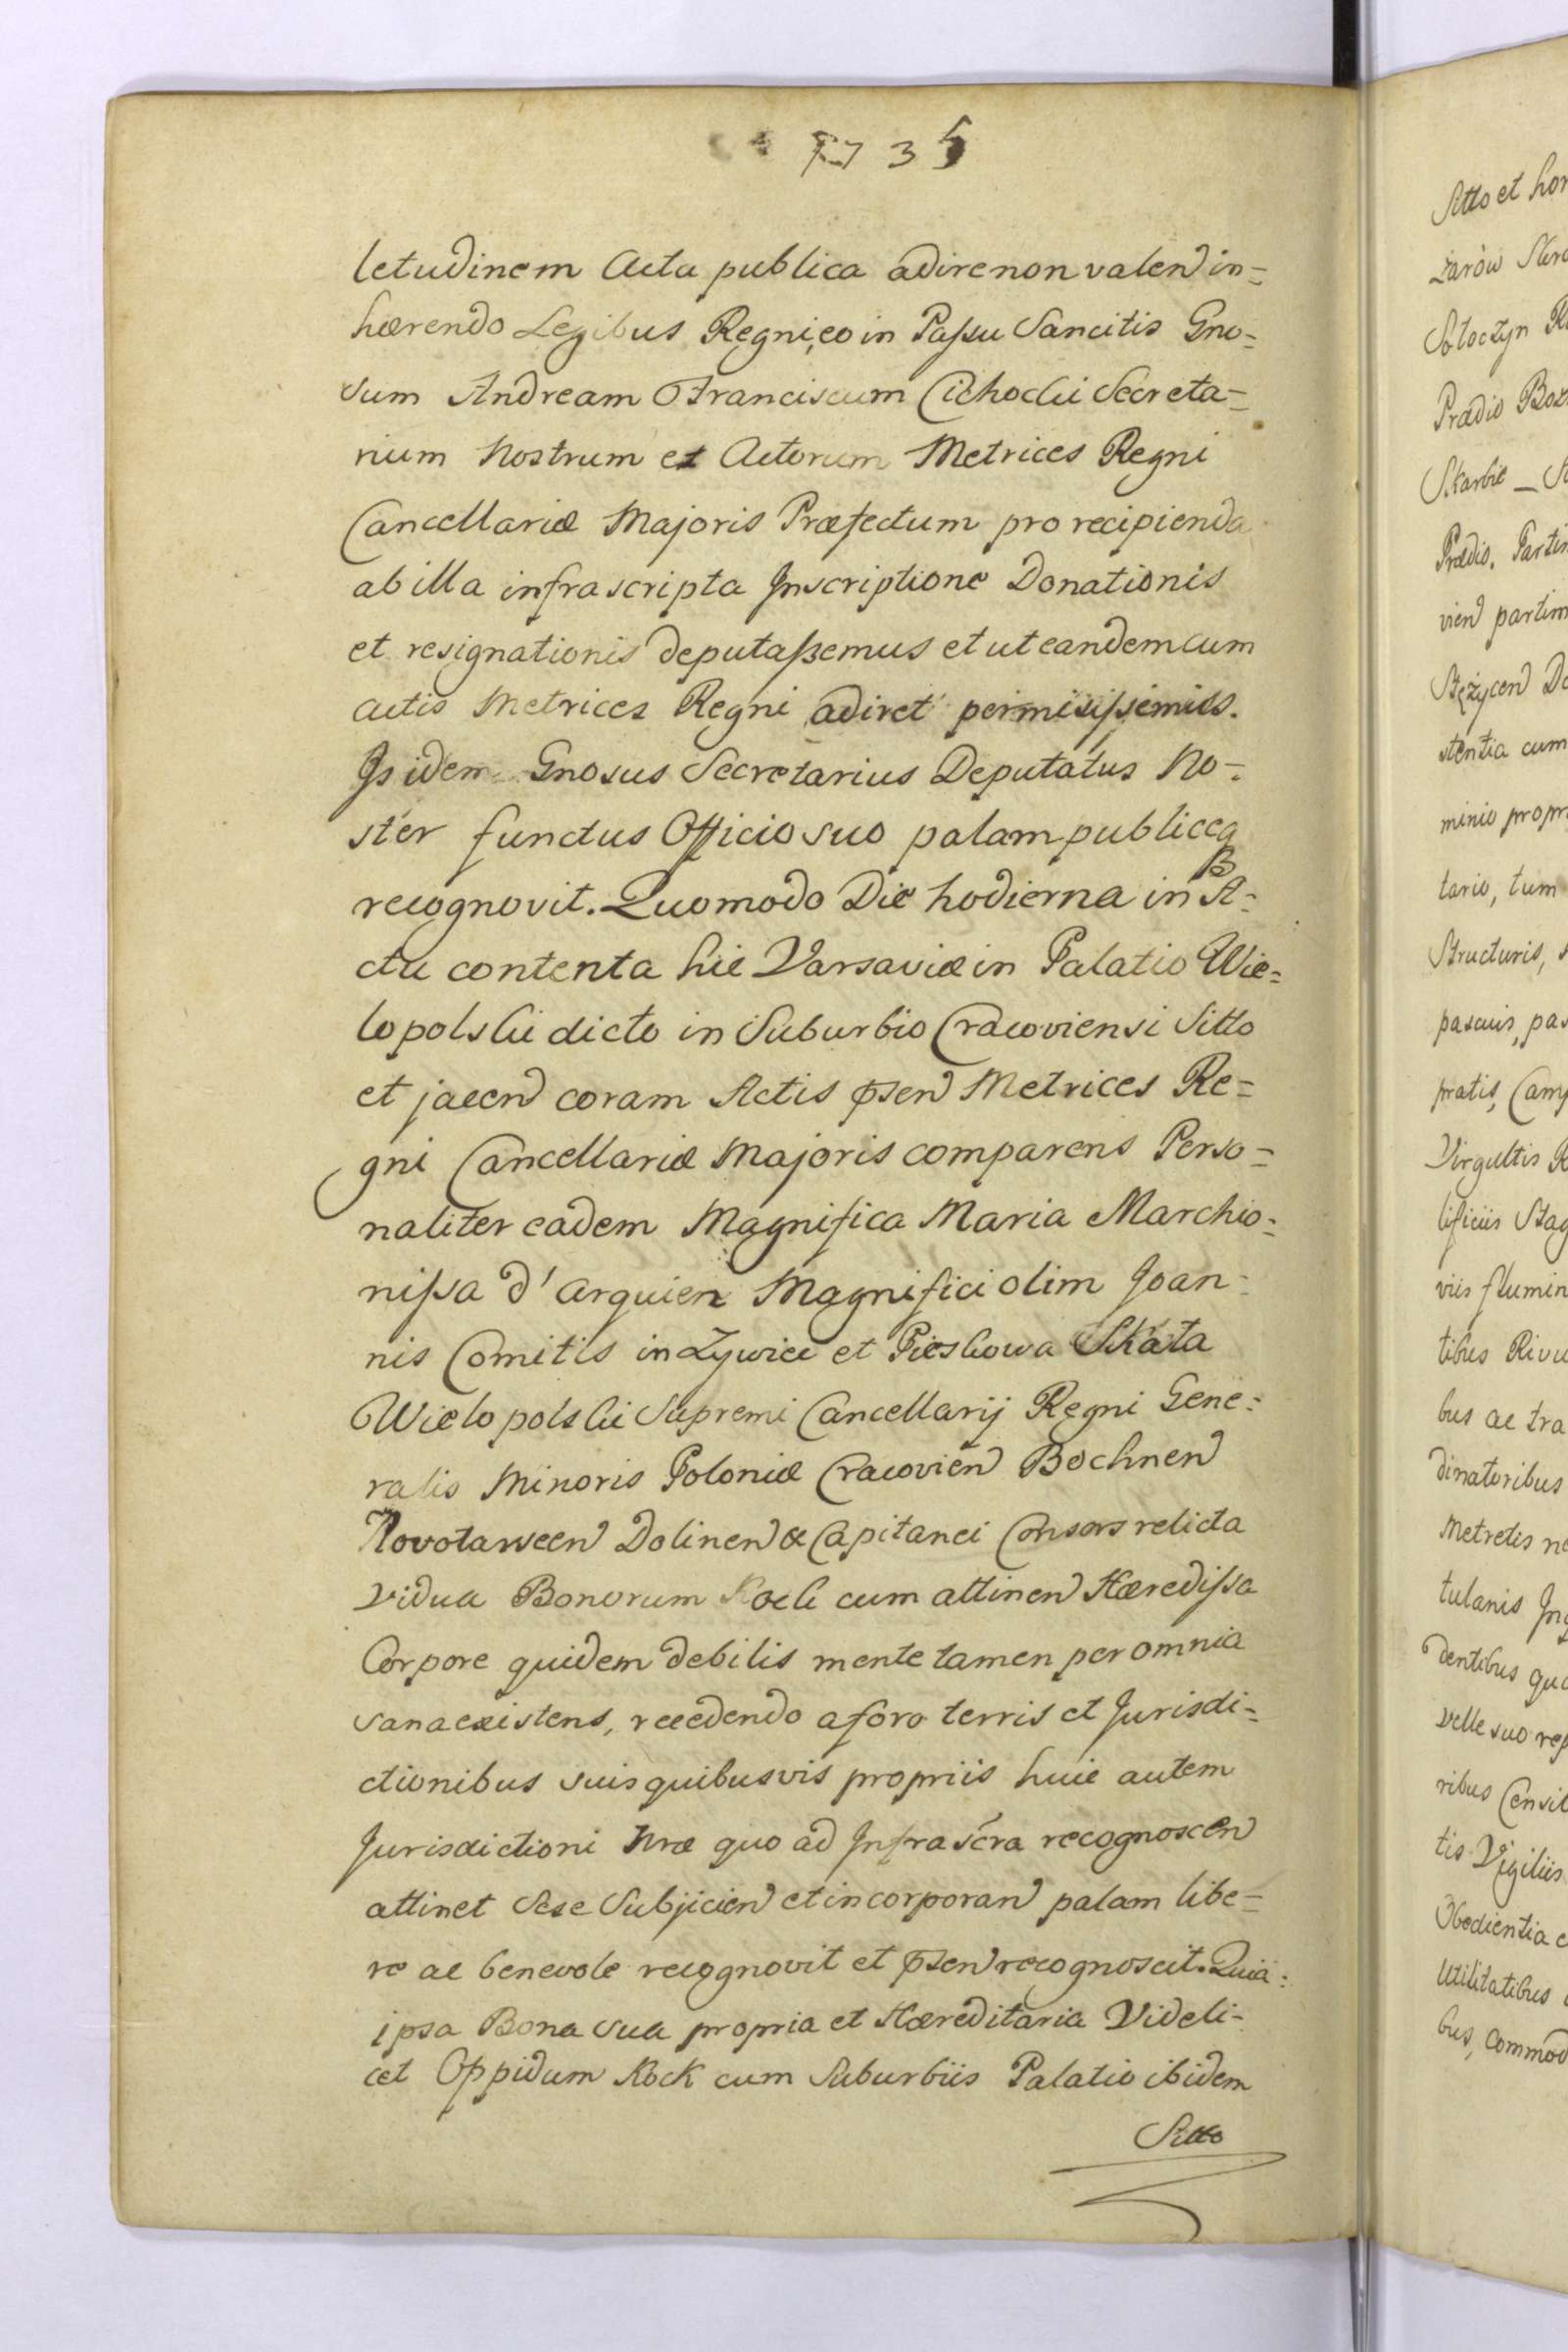 1735
letudinem Acta publica adire non valen in=
hærendo Legibus Regni, eo in Passu Sancitis Gno=
sum Andream Franciscum Cichocki Secreta=
rium Nostrum et Actorum Metrices Regni
Cancellariæ Majoris Præfectum pro recipienda
ab illa infrascripta Inscriptione Donationis
et resignationis deputassemus et ut eandem cum
actis Metrices Regni adiret permisissemus.
Is idem Gnosus Secretarius Deputatus No=
ster functus Officio suo palam publiceq
recognovit. Quomodo Die hodierna in A=
B
ctu contenta hic Varsaviæ in Palatio Wie=
lopolski dicto in Suburbio Cracoviensi Sitto
et jacen coram Actis psen Metrices Re=
gni Cancellariæ Majoris comparens Perso=
naliter eadem Magnifica Maria Marchio=
nissa d'Arquien Magnifici olim Joan=
nis Comitis in Zywice et Pieskowa Skała
Wielopolski Supremi Cancellarij Regni Gene=
ralis Minoris Poloniæ Cracovien Bochnen
Novotarscen Dolinen & Capitanei Consors relicta
vidua Bonorum Kock cum attinen Hæredissa
Corpore quidem debilis mente tamen per omnia
sana existens, recedendo a foro terris et Jurisdi=
ctionibus suis quibusvis propriis huic autem
Jurisdictioni Nræ quo ad Infra scra recognoscen
attinet Sese Subjicien et incorporan palam libe=
re ac benevole recognovit et psen recognoscit. Quia:
ipsa Bona sua propria et Hæreditaria Videli-
cet Oppidum Kock cum Suburbiis Palatio ibidem
Sitto
Sitto et hor
żarów
Sołoczyn
Prædio Boz
Skarbie –
Prædio. Partim
vien partim
Stężycen
stentia cum
minio propr
tario, tum
Structuris, s
pascuis, pas
pratis, Camp
Virgultis R
lificiis Stag
viis flumin
tibus Rivu
bus ac tra
dinatoribus
Metretis ne
tulanis
dentibus qua
velle suo
ribus Censib
tis Vigiliis
Obedientia e
Utilitatibus
bus, Commod